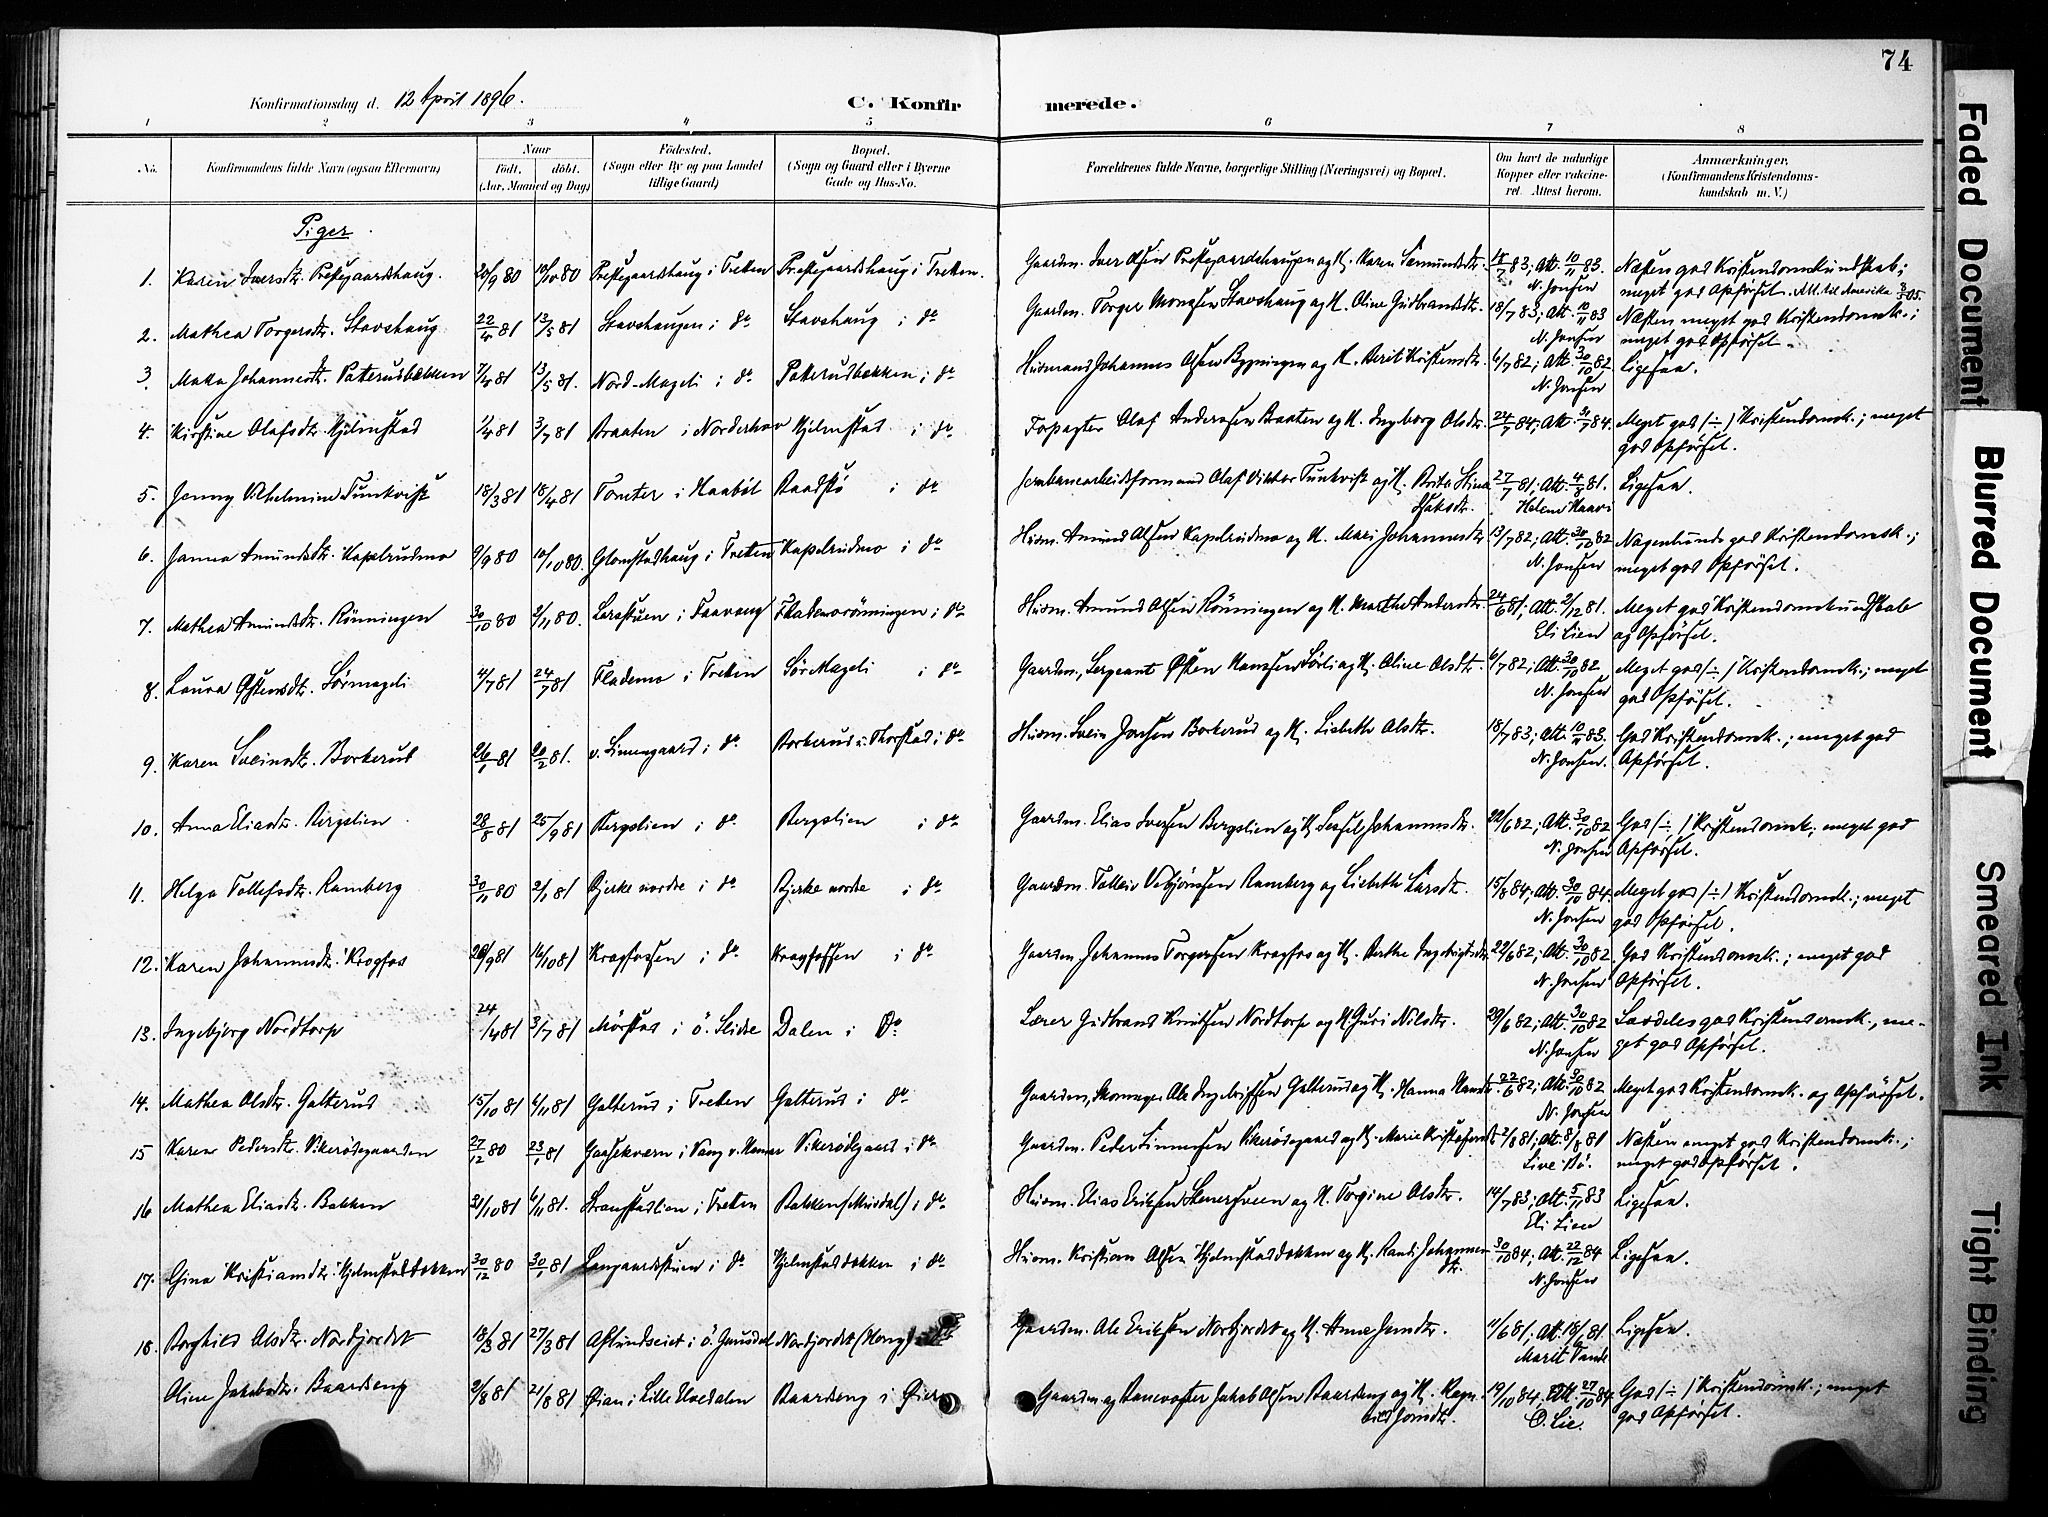 74
Konfirmationsdag d. 12 April 1896. C. Konfirmerede.
1 2 3 4 5 6 7 8
No. Konfirmandens fulde Navn (ogsaa Efternavn) Naar født, døbt. (Aar, Maaned og Dag) Fødested. (Sogn eller By og paa Landet tillige Gaard) Bopæl. (Sogn og Gaard eller i Byerne Gade og Hus-No. Forældrenes fulde Navne, borgerlige Stilling (Næringsvei) og Bopæl. Om havt de naturlige Kopper eller vakcineret. Attest herom. Anmærkninger. (Konfirmandens Kristendomskundskab m. V.)
Piger.
1. Karen Iversdtr. Prestegaardshaug. 20/9 80 10/10 80 Prestegaardshaug i Tretten Prestegaardshaug i Tretten. Gaardm. Iver Olsen Prestegaardshaugen og H. Karen Simensdtr. 18/7 83; Att. 10/11 83. N. Jonsen Næsten god Kristendomskundskab; meget god Opførsel. Att. til Amerika
2. Mathea Torgersdtr. Stavshaug 22/4 81 13/5 81 Stavshaugen i do Stavshaug i do Gaardm. Torger Monssen Stavshaug og H. Oline Gudbrandsdtr. 18/7 83; Att. 10/11 83 N. Jonsen Næsten meget god Kristendomsk.; meget god Opførsel.
3. Mathea Johannesdtr. Paterudbakken 7/4 81 13/5 81. Nord-Mageli i do Paterudbakken i do Husmand Johannes Olsen Bygningen og H. Berit Kristensdtr. 6/7 82; Att. 30/10 82 N. Jonsen Ligesaa.
4. Kirstine Olafsdtr. Hjelmstad 1/4 81 3/7 81 Braaten i Norderhov Hjelmstad i do Forpagter Olaf Andersen Braaten og H. Ingeborg Olsdtr. 24/7 84; Att. 31/7 84. Meget god (÷) Kristendomsk.; meget god Opførsel.
5. Jenny Vilhelmine Tunkvist 18/3 81 18/4 81 Tomter i Haabøl Baadstø i do Jernbanearbeidsformand Olaf Viktor Tunkvist og H. Brita Stina 27/7 81; Att. 4/8 81. Helene Ligesaa.
6. Janna Amundsdtr. Kapelrudmo 9/9 80 10/10 80. Glomstadhaug i Tretten Kapelrudmo i do Husm. Amund Olsen Kapelrudmo og H. Mari Johannesdtr. 13/7 82; Att. 30/10 82 N. Jonsen Nogenlunde god Kristendomsk.; meget god Opførsel.
7. Mathea Amundsdtr. Rönningen 30/10 80 2/11 80. Larsstuen i Faavang Flademorönningen i do Husm. Amund Olsen Rönningen og H. Marthe Andersdtr. 24/6 81; Att. 2/12 81. Eli Lien Meget god Kristendomskundskab og Opførsel.
8. Laura Østensdtr. Sörmageli 4/7 81 24/7 81 Flademo i Tretten Sør Mageli i do Gaardm., Sergeant Østen Hanssen Sörli og H. Oline Olsdtr. 6/7 82; Att. 30/10 82 N. Jonsen Meget god (÷) Kristendomsk.; meget god Opførsel.
9. Karen Sveinsdtr. Borkerud 26/1 81 20/2 81. v. Linnegaard i do Borkerud u. Thorstad i do Husm. Svein Jonsen Borkerud og H. Lisbeth Olsdtr. 18/7 83; Att. 10/11 83. N. Jonsen. God Kristendomsk.; meget god Opførsel.
10. Anna Eliasdtr. Bergslien 28/8 81 25/9 81 Bergslien i do Bergslien i do Gaardm. Elias Iversen Bergslien og H. Sessel Johannesdtr. 22/6 82; Att. 30/10 82 N. Jonsen God (÷) Kristendomsk.; meget god Opførsel.
11. Helga Tollefsdtr. Ramberg 30/11 80 2/1 81 Bjerke nordre i do Bjerke nordre i do Gaardm. Tollev Vebjörnsen Ramberg og Lisbeth Larsdtr. 15/8 84; Att. 30/10 84. N. Jonsen Meget god (÷) Kristendomsk.; meget god Opførsel.
12. Karen Johannesdtr. Krogfos 20/9 81 16/10 81 Kragfossen i do Kragfossen i do Gaardm. Johannes Torgersen Kragfos og H. Berthe Ingebrigtsdtr. 22/6 82; Att. 30/10 82. N. Jonsen God Kristendomsk.; meget god Opførsel.
13. Ingebjørg Nordtorp 24/4 81 3/7 81 Mørstad i ö. Slidre Dalen i Do Lærer Gudbrand Knutsen Nordtorp og H. Guri Nilsdtr. 29/6 82; Att. 30/10 82 N. Jonsen Saadeles god Kristendomsk., meget god Opførsel.
14. Mathea Olsdtr. Galterud 15/10 81 6/11 81 Galterud i Tretten Galterud i do Gaardm., Skomager Ole Ingebrigtsen Galterud og H. Hanna Hansdtr. 22/6 82; Att. 30/10 82 N. Jonsen Meget god Kristendomsk. og Opførsel.
15 Karen Pedersdtr. Vikerødegaarden 27/12 80 23/1 81 Gaasekværn i Vang v. Hamar Vikerødgaard i do Gaardm. Peder Simensen Vikerødegaard og H. Marie Kristofersdtr. 2/8 81; Att. 8/8 81 Live Bø. Næsten meget god Kristendomsk.; meget god Opførsel.
16 Mathea Eliasdtr. Bakken 31/10 81 6/11 81. Strandstadlien i Tretten Bakken (Musdal) i do Husm. Elias Eriksen Stenersveen og H. Torgine Olsdtr. 14/7 83; Att. 5/11 83 Eli Lien Ligesaa.
17. Gina Kristiansdtr. Hjelmstadbakken 30/12 80 30/1 81 Langaardsstuen i do Hjelmstadbakken i do Husm. Kristian Olsen Hjelmstadbakken og H. Randi Johannesdtr. 30/10 84; Att. 22/12 84 N. Jonsen Ligesaa.
18. Borghild Olsdtr. Nordfjordet 18/3 81 27/3 81 i ö. Gausdal Nordfjordet (Hong) Gaardm. Ole Eriksen Norfjordet og H. Anne Jonsdtr. 11/6 81; Att. 18/6 81. Marit Tande Ligesaa.
Oline Jakobsdtr. Baardseng 2/8 81 21/8 81 Øian i Lille Elvedalen Baardseng i Øier Gaardm. og Banevogter Jakob Olsen Baardseng og H. Ragnhild Jonsdtr. 19/10 84. Att. 27/10 84 O. Lie. God (÷) Kristendomsk.; meget god Opførsel.
Faded Document
Blurred Document
Smeared Ink
Tight Binding